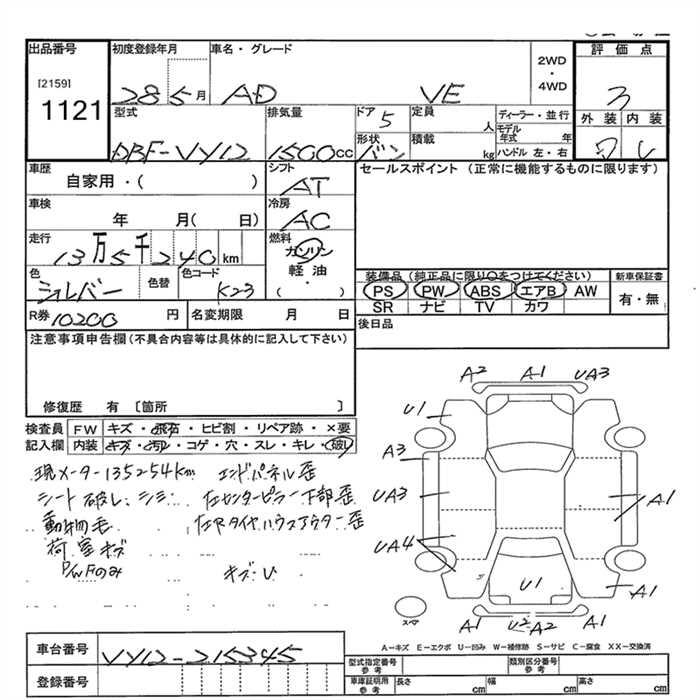 出品番号 初度登録年月 車名・グレード 2WD・4WD 評価点
[2159]
1121
28 5月 AD VE 3
型式 排気量 ドア 5 定員 人 ディーラー・並行 外装 内装
DBF-VY12 1500cc 形状 バン 積載 kg モデル年式 年
ハンドル 左・右
車歴 シフト セールスポイント (正常に機能するものに限ります)
自家用・( ) AT
車検 冷房
年 月( 日) AC
走行 燃料
13万5千240km ガソリン・軽油・( )
色 シルバー 色替 色コード K23
装備品 (純正品に限り○をつけてください) 新車保証書
PS PW ABS エアB AW 有・無
SR ナビ TV カワ
R券 10200 円 名変期限 月 日 後日品
注意事項申告欄(不具合内容等は具体的に記入して下さい)
修復歴 有 [箇所 ]
検査員 FW キズ・飛石・ヒビ割・リペア跡・×要
記入欄 内装 キズ・汚レ・コゲ・穴・スレ・キレ・破レ
現メーター135254km エンドパネル歪
シート破レ、シミ 左センターピラー下部歪
動物毛 左Rタイヤハウスアウター歪
荷室キズ
P/WFのみ キズ・U
A2 A1 UA3
U1
A3
UA3 A1
UA4
U1 A1
A1 U2 A2 A1
スペア
A-キズ E-エクボ U-凹み W-補修跡 S-サビ C-腐食 XX-交換済
車台番号 VY12-215345
登録番号
型式指定番号 参考 類別区分番号 参考
車庫証明用 参考 長さ cm 幅 cm 高さ cm